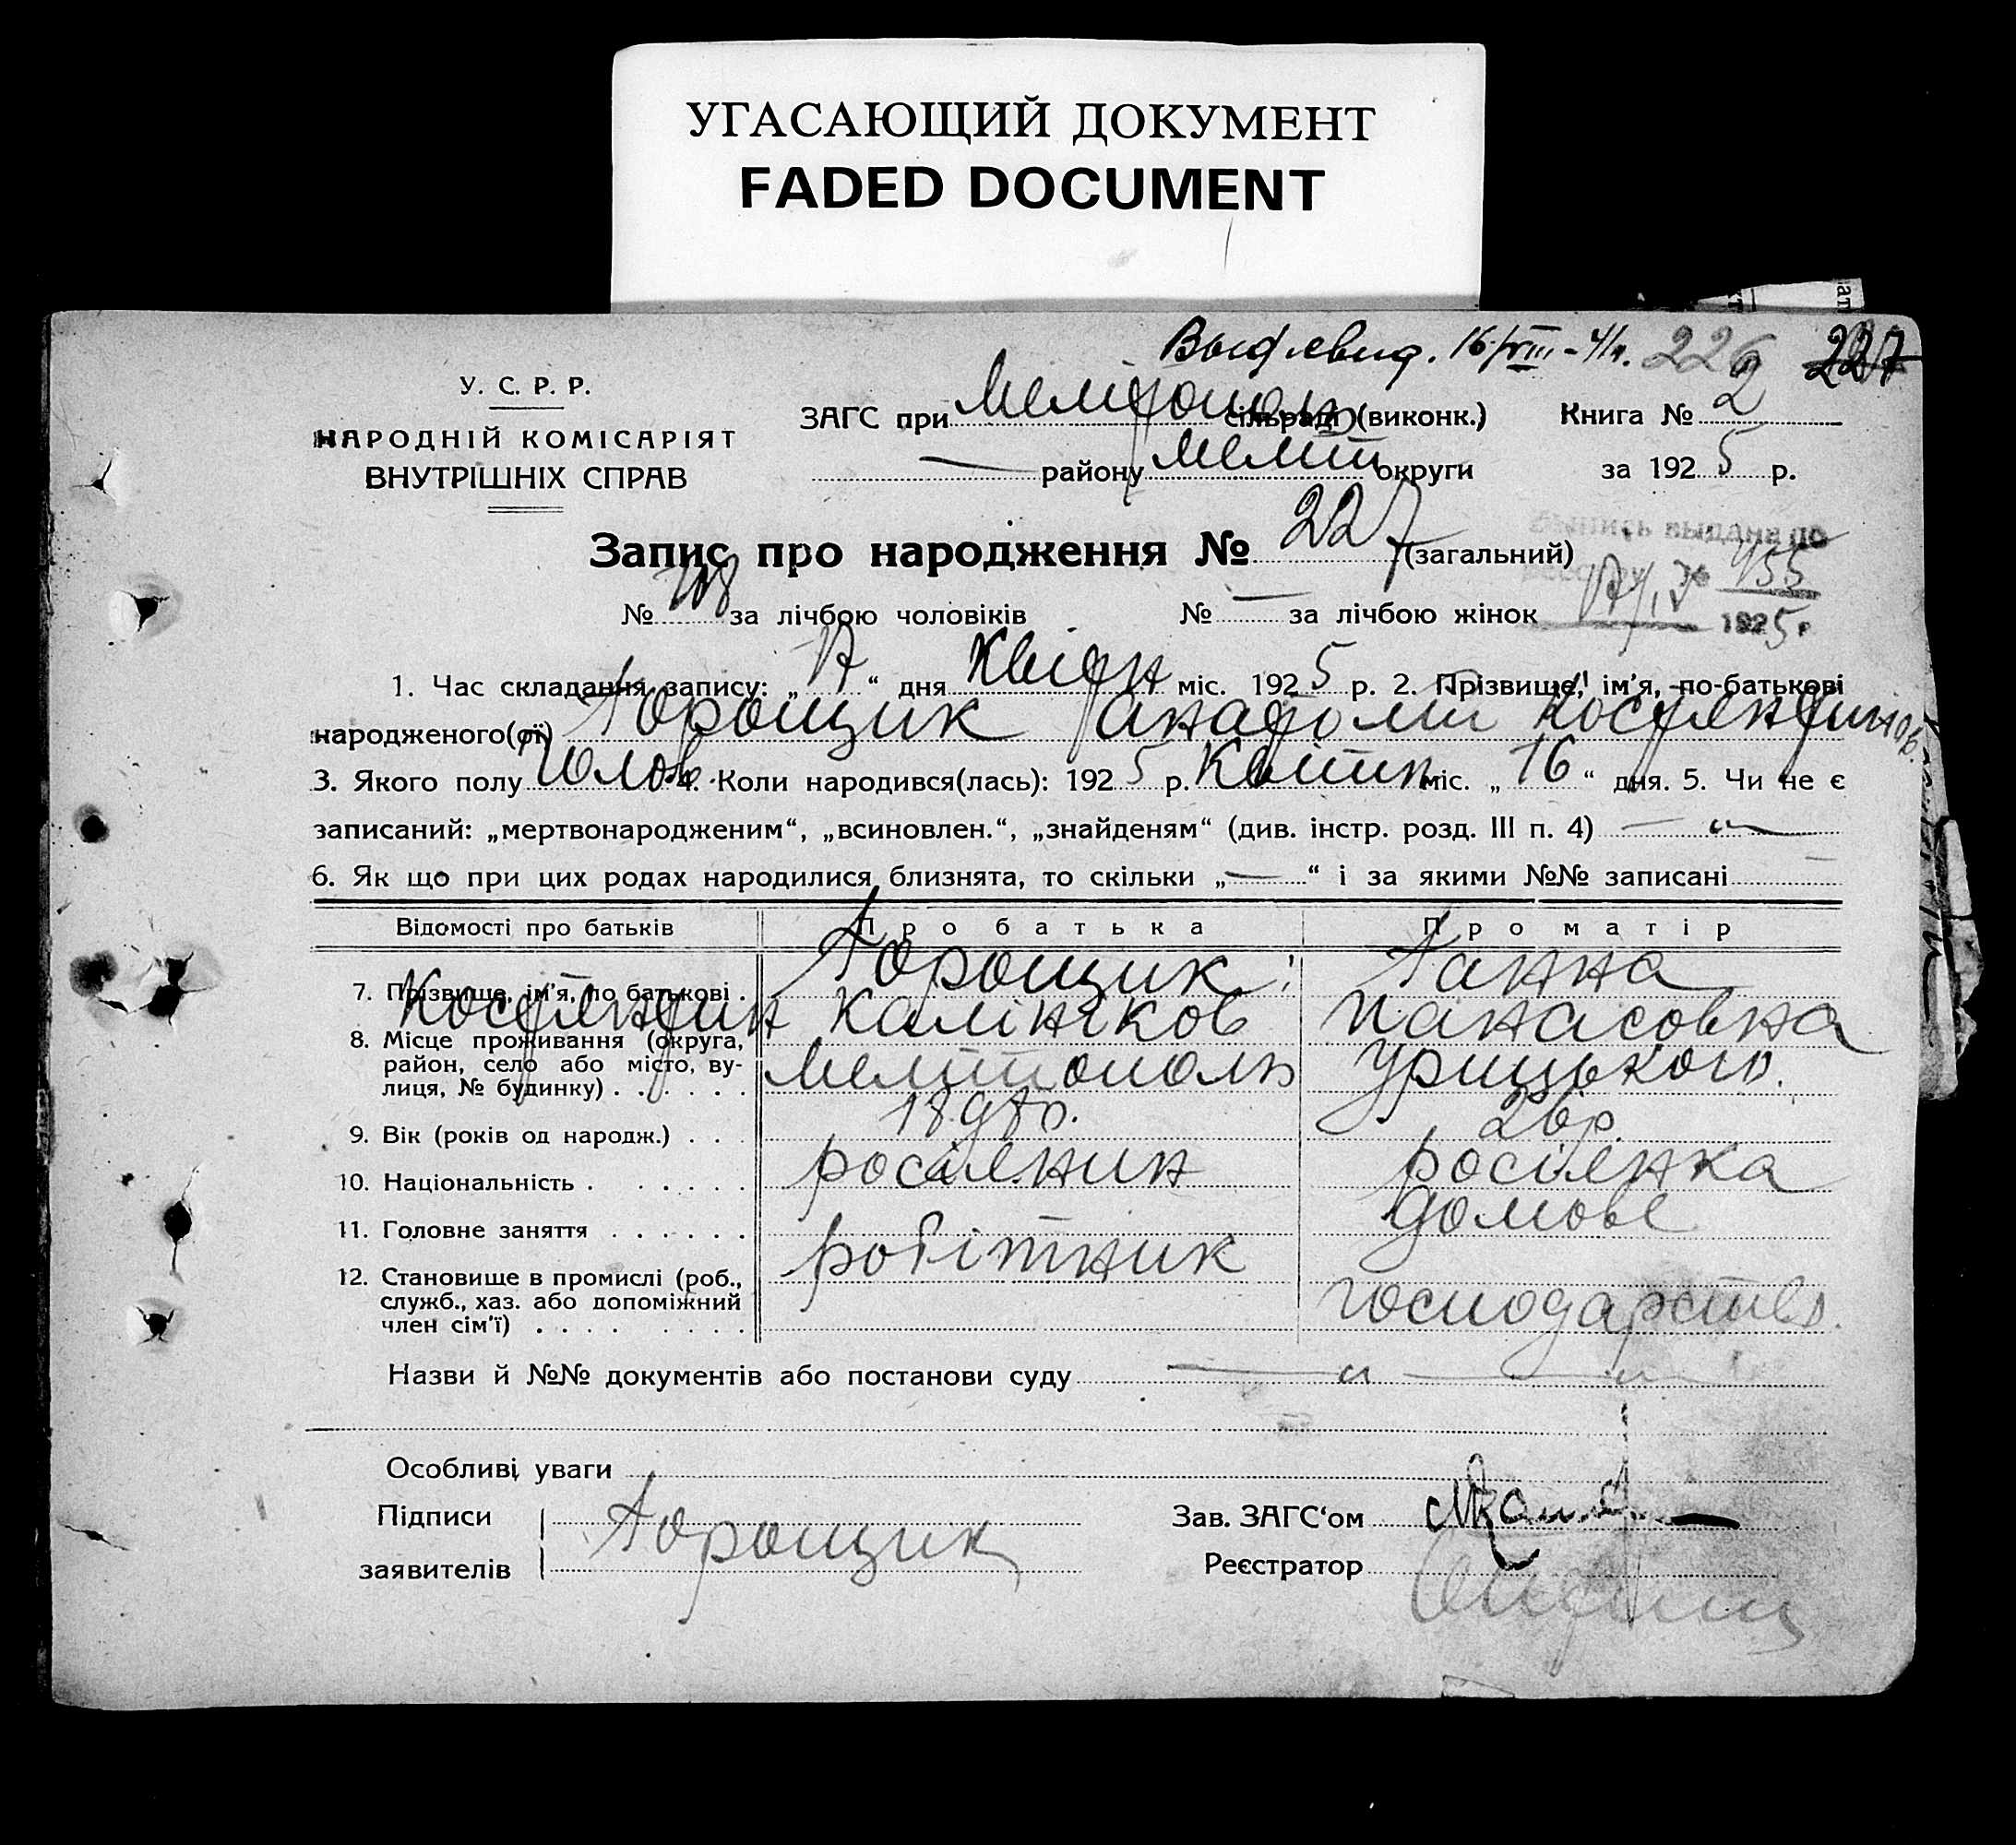 УГАСАЮЩИЙ ДОКУМЕНТ
FADED DOCUMENT
Выд свид. 16/VIII-41г. 226 227
У. С. Р. Р.
НАРОДНІЙ КОМІСАРІЯТ
ВНУТРІШНІХ СПРАВ
ЗАГС при Мелітополь сільраді (виконк.) Книга № 2
— району Меліт округи за 1925 р.
Запис про народження № 227 (загальний)
Выпись выдана по
№ 455
1925 г
№ 108 за лічбою чоловіків № — за лічбою жінок
1. Час складання запису: „17“ дня Квітн міс. 1925 р. 2. Прізвище, ім'я, по-батькові
народженого(ої) Горощик Анатолій Костянтинов.
3. Якого полу Чолов. 4. Коли народився(лась): 1925 р. Квітн міс. „16“ дня. 5. Чи не є
записаний: „мертвонародженим“, „всиновлен.“, „знайденям“ (див. інстр. розд. III п. 4) — „ —
6. Як що при цих родах народилися близнята, то скільки „—“ і за якими №№ записані
Відомості про батьків Про батька Про матір
7. Прізвище, ім'я, по батькові . Горощик Ганна
Костянтин Калініков Панасовна
8. Місце проживання (округа,
район, село або місто, ву-
лиця, № будинку) . . . . . . Мелітополь Урицького.
9. Вік (років од народж.) . . . 26 р.
10. Національність . . . . . . росіянин росіянка
11. Головне заняття . . . . . . робітник домове
12. Становище в промислі (роб.,
служб., хаз. або допоміжний
член сім'ї) . . . . . . . . господарство.
Назви й №№ документів або постанови суду — „ — „ —
Особливі уваги
Підписи
заявителів Горощик
Зав. ЗАГС'ом
Реєстратор